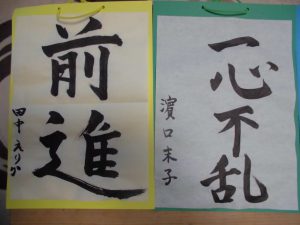 前進
田中えりか
一心不乱
濵口末子